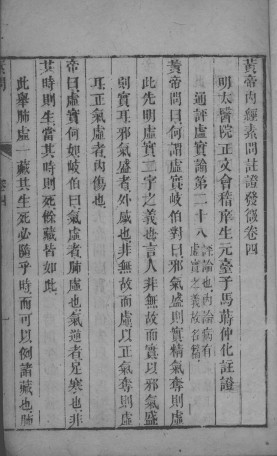 黃帝內經素問註證發微卷四
明太醫院正文會稽庠生元臺子馬蒔仲化註證
通評虛實論第二十八
評論也內論病有
虛實之義故名篇
黃帝問曰何謂虛實岐伯對曰邪氣盛則實精氣奪則虛
此先明虛實二字之義也言人非無故而實以邪氣盛
則實耳邪氣盛者外感也非無故而虛以正氣奪則虛
耳正氣虛者內傷也
帝曰虛實何如岐伯曰氣虛者肺虛也氣逆者足寒也非
其時則生當其時則死餘藏皆如此
此舉肺虛一藏其生死必隨乎時而可以例諸藏也肺